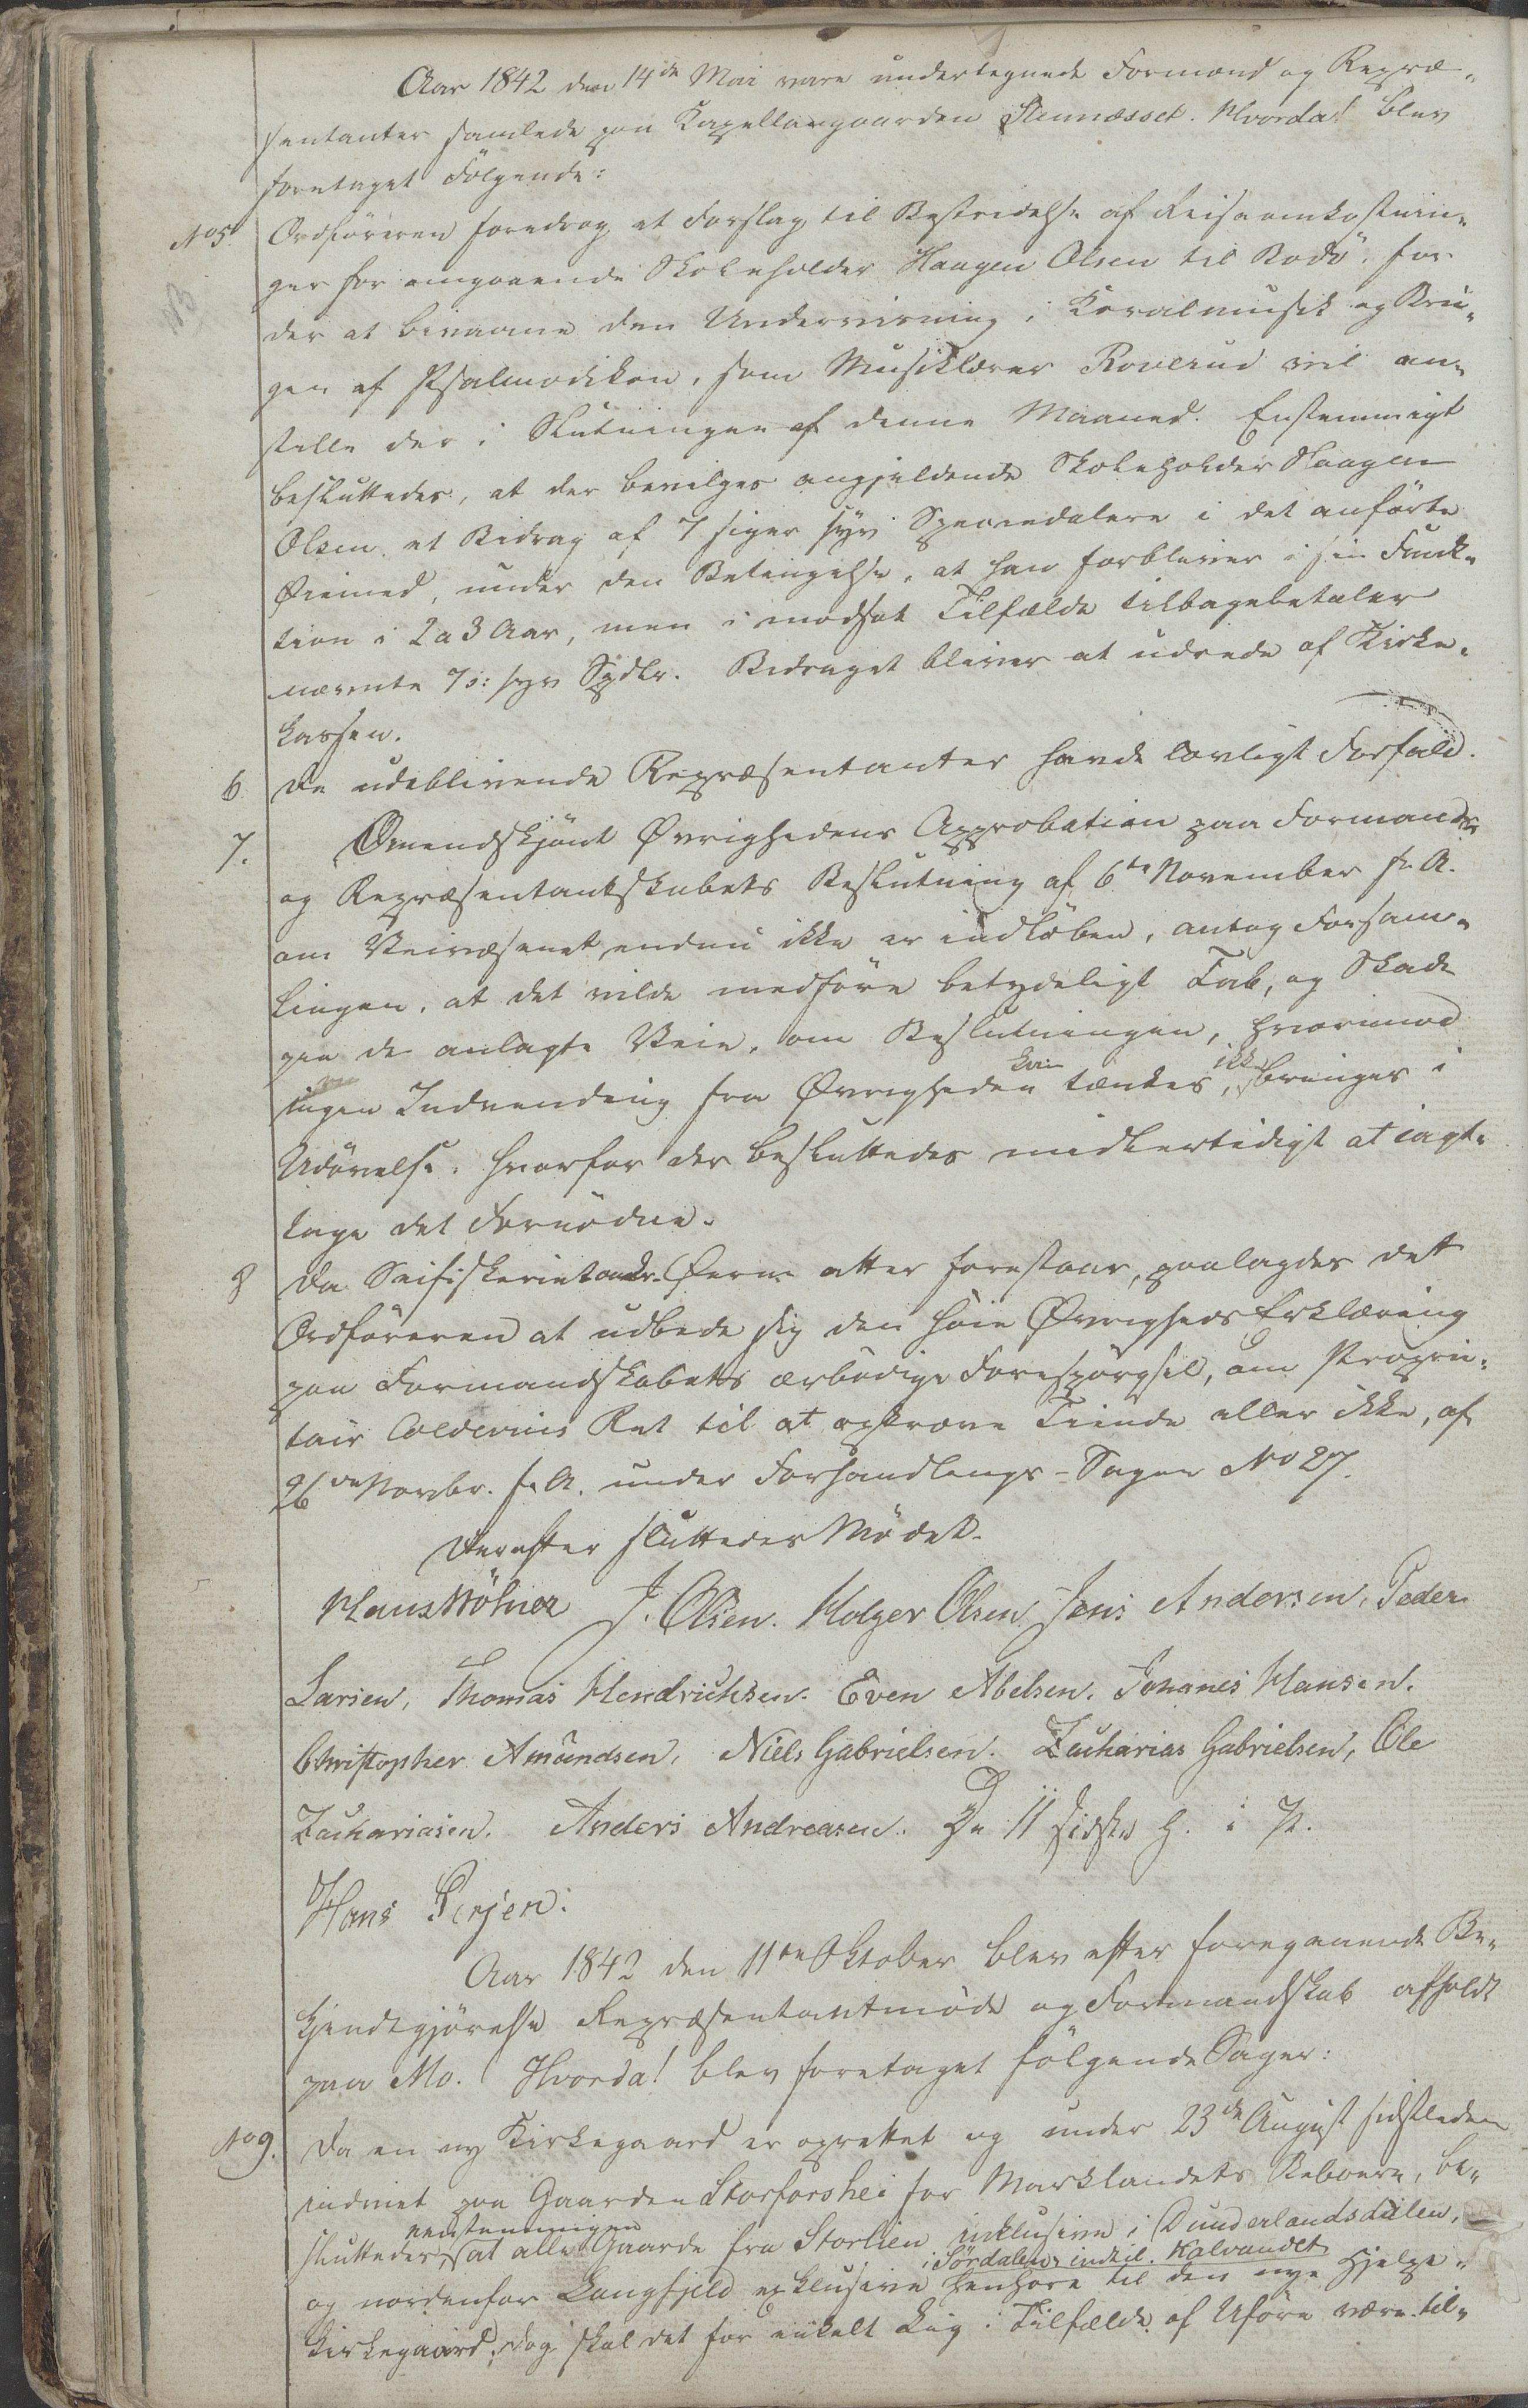 Aar 1842 den 14de Mai vare undertegnede Formænd og Repræ-
sentanter samlede paa Kapellangaarden Stennæsset. Hvorda! blev
foretaget Følgende:
No 5 Ordföreren foredrog et Forslag til Bestridelse af Reiseomkostnin-
ger for omgaaende Skoleholder Haagen Olsen til Bodö, for
der at bivaane den Underviisning i Koralmusik og Bru-
gen af Psalmodikon, som Musiklærer Roverud vil an-
stille der i Slutningen af denne Maaned. Enstemmigt
besluttedes, at der bevilges angjeldende Skoleholder Haagen
Olsen et Bidrag af 7 siger syv Speciedalere i det anförte
Øiemed, under den Betingelse, at han forbliver i sin Funk-
tion i 2 a 3 Aar, men i modsat Tilfælde tilbagebetaler
nævnte 7 s: syv Spdlr. Bidraget bliver at udrede af Kirke-
kassen.
6 De udeblivende Repræsentanter havde lovligt Forfald.
7. Omendskjönt Øvrighedens Approbation paa Formands-
og Repræsentantskabets Beslutning af 6te November f. A.
om Veivæsenet endnu ikke er indlöben, antog Forsam-
lingen, at det vilde medföre betydeligt Tab, og Skade
paa de anlagte Veie, om Beslutningen, hvorimod
ingen Indvending fra Øvrigheden kan tænkes, ikke bringes i
Udövelse, hvorfor der besluttedes midlertidigt at iagt-
tage det Fornödne.
8 Da Seifiskeriet under Øerne atter forestaar, paalagdes det
Ordföreren at udbede sig den höie Øvrigheds Erklæring
paa Formandskabets ærbödige Forespörgsel, om Proprie-
tair Coldevins Ret til at opkræve Tiende eller ikke, af
26de Novbr. f. A. under Forhandlings-Sagen No 27.
Derefter sluttedes Mödet.
Hans J. Olsen. Holger Olsen Jens Andersen, Peder
Larsen, Thomas Hendrichsen. Even Abelsen. Johanes Hansen.
Christopher Amundsen, Niels Gabrielsen. Zacharias Gabrielsen, Ole
Zachariasen. Anders Andreasen. De 11 sidste h. i P.
Hans
Aar 1842 den 11te Oktober blev efter foregaaende Be-
kjendtgjörelse Repræsentantmöde og Formandskab afholdt
paa Mo. Hvorda! blev foretaget fölgende Sager:
No 9. Da en ny Kirkegaard er oprettet og under 23de August sidstleden
indviet paa Gaarden Storforshei for Marklandets Beboere, be-
sluttedes eenstemmigen, at alle Gaarde fra Storlien inklusive i Dunderlandsdalen,
i Sördalen indtil Kalvandet
og nordenfor Langfjeld exklusive henhöre til den nye Hjelpe-
kirkegaard; dog skal det for enkelt Liig i Tilfælde af Uföre være til-